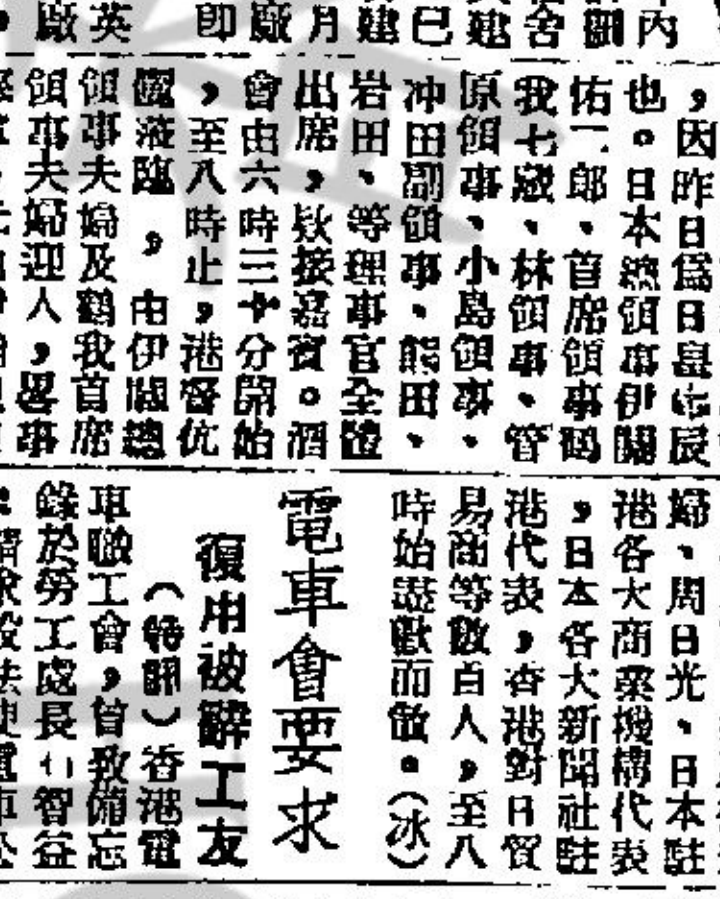 內
觀
舍
建
已
建
月
廠
即
英
廠
，因昨日為日皇壽辰
也。日本總領事伊關
佑二郎、首席領事鶴
我七歲、林領事、管
原領事、小島領事、
冲田副領事、熊田、
岩田、等理事官全體
出席，欵接嘉賓。酒
會由六時三十分開始
，至八時止，港督伉
儷蒞臨，由伊關總
領事夫婦及鶴我首席
領事夫婦迎人，畧事
婦、周日光、日本駐
港各大商業機構代表
，日本各大新聞社駐
港代表，香港對日貿
易商等數百人，至八
時始盡歡而散。（冰）
電車會要求
復用被辭工友
（特訊）香港電
車職工會，曾致備忘
錄於勞工處長石智益